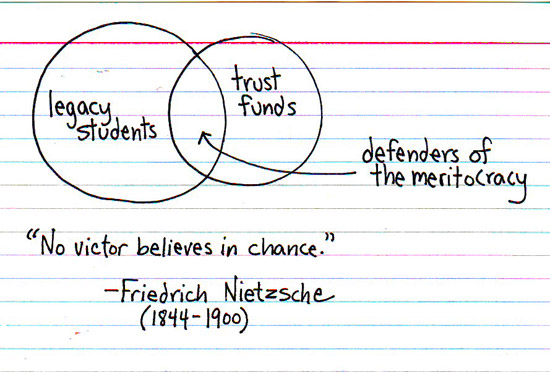 legacy
students
trust
funds
defenders of
the meritocracy
“No victor believes in chance.”
–Friedrich Nietzsche
(1844–1900)